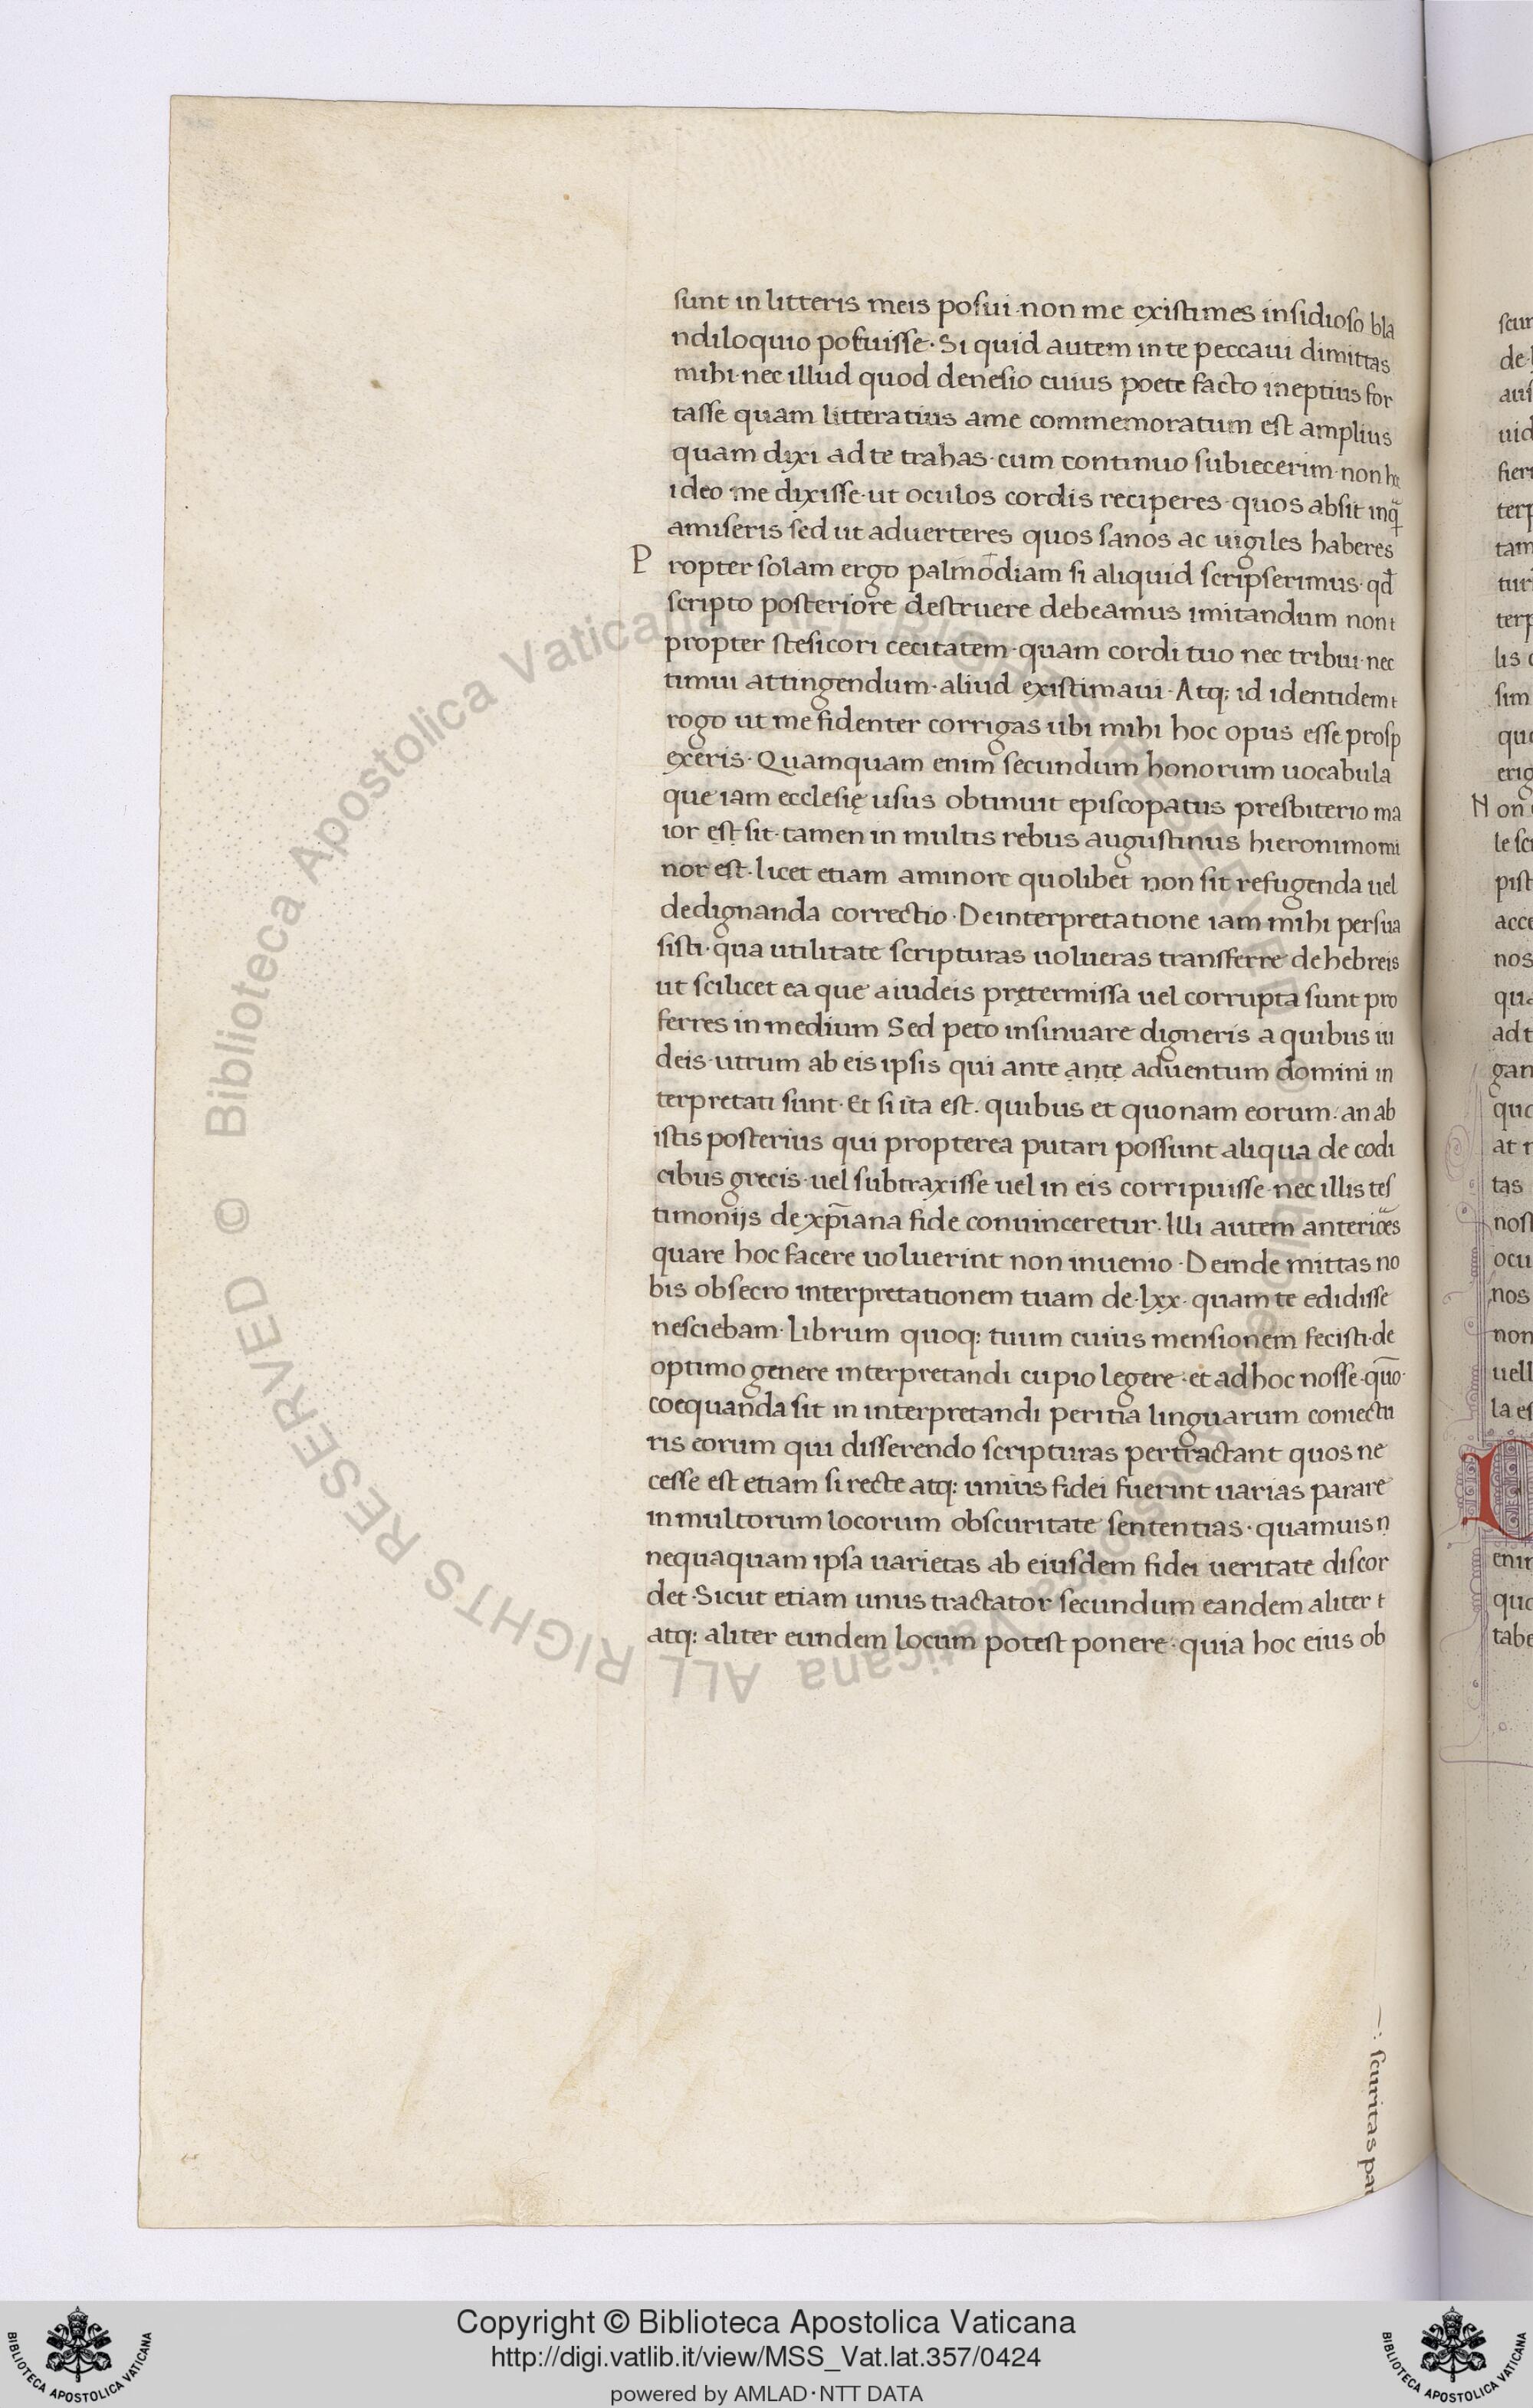 sunt in litteris meis posui · non me existimes insidioso bla
ndiloquio potuisse · Si quid autem in te peccaui dimittas
mihi · nec illud quod de nesio cuius poete facto ineptius for
tasse quam litteratius a me commemoratum est amplius
quam dixi ad te trahas · cum continuo subiecerim · non
ideo · me dixisse · ut oculos cordis reciperes · quos absit
amiseris sed ut aduerteres quos sanos ac uigiles haberes
Propter solam ergo palmodiam si aliquid scripserimus · qd̄
scripto posteriore destruere debeamus imitandum non
propter stesicori cecitatem · quam cordi tuo nec tribui · nec
timui attingendum · aliud existimaui · Atq; id identidem
rogo ut me fidenter corrigas ubi mihi hoc opus esse prosp
exeris · Quamquam enim secundum honorum uocabula
que iam ecclesię usus obtinuit episcopatus presbiterio ma
ior est sit · tamen in multis rebus augustinus hieronimo mi
nor est · licet etiam a minore quolibet non sit refugenda uel
dedignanda correctio · De interpretatione iam mihi persua
sisti · qua utilitate scripturas uolueras transferre de hebreis
ut scilicet ea que a iudeis pretermissa uel corrupta sunt pro
ferres in medium Sed peto insinuare digneris a quibus iu
deis · utrum ab eis ipsis qui ante ante aduentum domini in
terpretati sunt · Et si ita est · quibus et quonam eorum · an ab
istis posterius qui propterea putari possunt aliqua de codi
cibus grecis · uel subtraxisse uel in eis corripuisse · nec illis tes
timonijs de xp̄iana fide conuinceretur · Illi autem
quare hoc facere uoluerint non inuenio · Deinde mittas no
bis obsecro interpretationem tuam de · lxx · quam te edidisse
nesciebam · Librum quoq; tuum cuius mensionem fecisti · de
optimo genere interpretandi cupio legere · et adhoc nosse · quō
coequanda sit in interpretandi peritia linguarum coniectu
ris eorum qui disserendo scripturas pertractant quos ne
cesse est etiam si recte atq; unius fidei fuerint uarias parare
in multorum locorum obscuritate sententias · quamuis n
nequaquam ipsa uarietas ab eiusdem fidei ueritate discor
det · Sicut etiam unus tractator secundum eandem aliter
atq; aliter eundem locum potest ponere · quia hoc eius ob
scuritas
de
terp
tam
terp
sim
Non
pist
acce
nos
ad t
gan
at
tas
ocu
nos
non
uell
la es
enim
Biblioteca Apostolica Vaticana
© Biblioteca Apostolica Vaticana ALL RIGHTS RESERVED
Copyright © Biblioteca Apostolica Vaticana
http://digi.vatlib.it/view/MSS_Vat.lat.357/0424
powered by AMLAD · NTT DATA
BIBLIOTECA APOSTOLICA VATICANA
BIBLIOTECA APOSTOLICA VATICANA